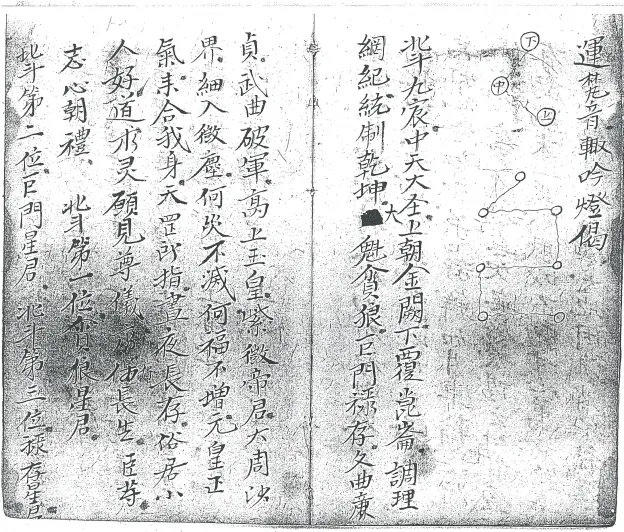 運梵音輙吟燈偈
下
中
上
北斗九宸中天大圣上朝金闕下覆崑崙調理
網紀統制乾坤大魁貪狼巨門祿存文曲廉
貞武曲破軍高上玉皇紫微帝君大周沙
界細入微塵何灾不滅何福不增元皇正
氣来合我身天罡所指晝夜長存俗居小
人好道求灵願見尊儀永保長生臣等
志心朝禮 北斗第一位貪狼星君
北斗第二位巨門星君 北斗第三位祿存星君